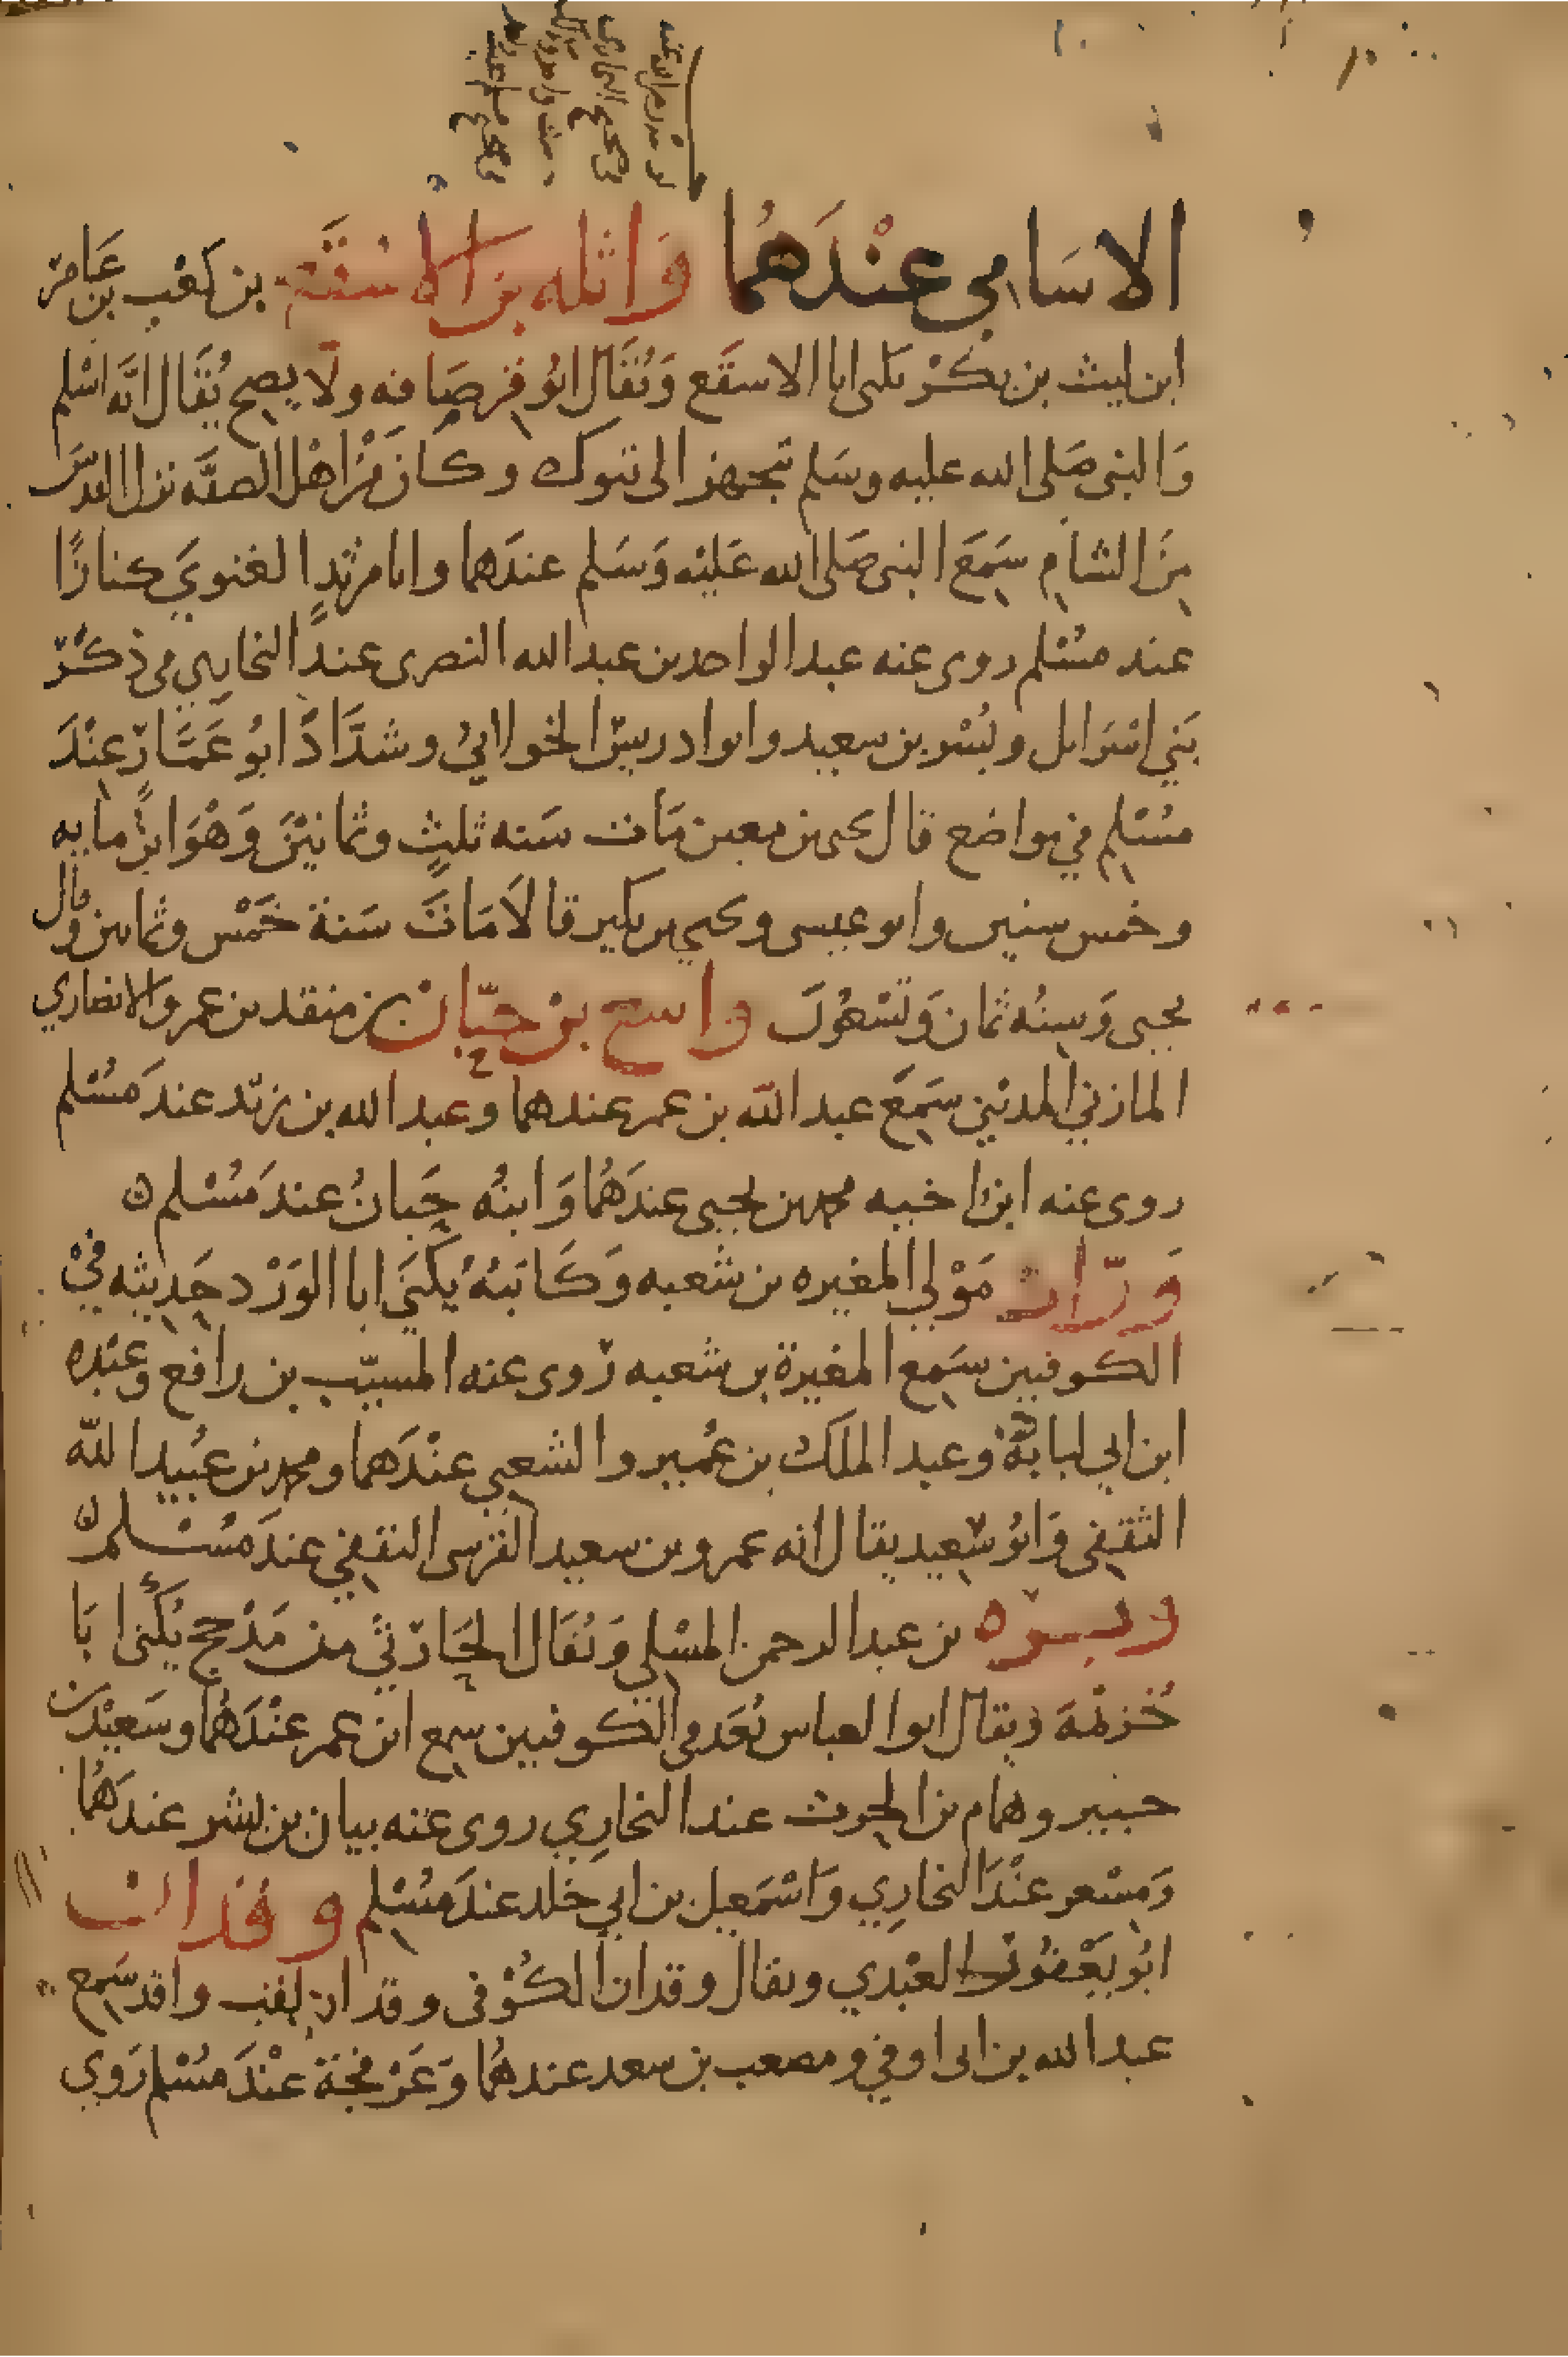 الاسامي عندهما واثله بن الاسقع بن كعب بن عامر
ابن ليث بن بكر يكنى ابا الاسقع ويقال ابو قرصافه ولا يصح يقال انه اسلم
والنبي صلى الله عليه وسلم تجهز الى تبوك وكان من اهل الصفه نزل القدس
من الشام سمع النبي صلى الله عليه وسلم عندهما وابا مرثد الغنوي كنازا
عند مسلم روى عنه عبد الواحد بن عبد الله النصري عند البخاري في ذكر
بني اسرائل وبسر بن سعيد وابو ادريس الخولاني وشداد ابو عمار عند
مسلم في مواضع قال يحيى بن معين مات سنه ثلث وثمانين وهو ابن مايه
وخمس سنين وابو عيسى ويحيى بن بكير قالا مات سنة خمس وثمانين وقال
يحيى وسنه ثمان وتسعون واسع بن حبان بن منقذ بن عمرو الانصاري
المازني المديني سمع عبد الله بن عمر عندهما وعبد الله بن زيد عند مسلم
روى عنه ابن اخيه محمد بن يحيى عندهما وابنه حبان عند مسلم
وراد مولى المغيره بن شعبه وكاتبه يكنى ابا الورد حديثه في
الكوفيين سمع المغيرة بن شعبه روى عنه المسيب بن رافع وعبده
ابن ابي لبابة وعبد الملك بن عمير والشعبي عندهما ومحمد بن عبيد الله
الثقفي وابو سعيد يقال انه عمرو بن سعيد القرشي الثقفي عند مسلم
وبره بن عبد الرحمن المسلي ويقال الحارثي من مذحج يكنى ابا
خزيمة ويقال ابو العباس يعد في الكوفيين سمع ابن عمر عندهما وسعيد بن
جبير وهمام بن الحرث عند البخاري روى عنه بيان بن بشر عندهما
ومسعر عند البخاري واسمعيل بن ابي خلد عند مسلم وقدان
ابو يعفور العبدي ويقال وقدان الكوفي وقدان لقب واقد سمع
عبد الله بن ابي اوفي ومصعب بن سعد عندهما وعرفجة عند مسلم روي